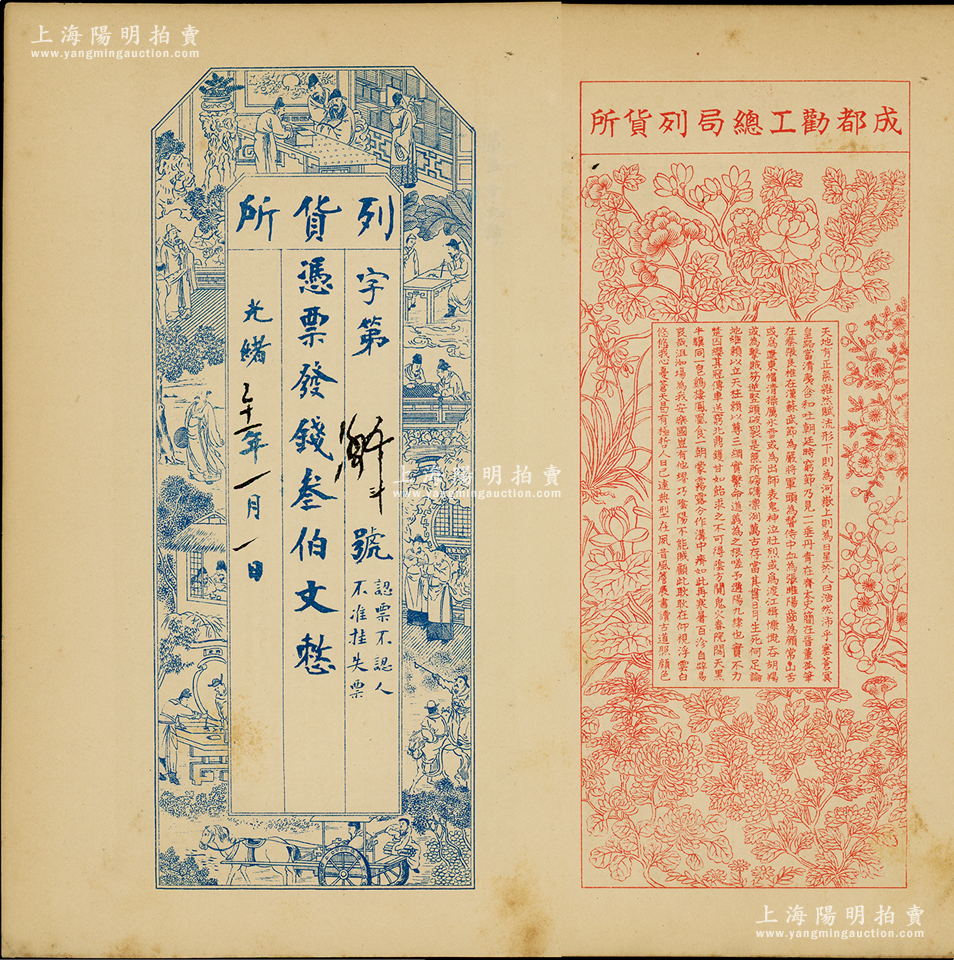 上海陽明拍賣
www.yangmingauction.com
列貨所
字第
號
認票不認人
不准挂失票
憑票發錢叁伯文整
光緒
十一年一月一日
上海陽明拍賣
www.yangmingauction.com
成都勸工總局列貨所
天地有正氣雜然賦流形下則為河嶽上則為日星於人曰浩然沛乎塞蒼冥
皇路當清夷含和吐朝廷時窮節乃見一一垂丹青在齊太史簡在晉董狐筆
在秦張良椎在漢蘇武節為嚴將軍頭為嵇侍中血為張睢陽齒為顏常山舌
或為遼東帽清操厲冰雪或為出師表鬼神泣壯烈或為渡江楫慷慨吞胡羯
或為擊賊笏逆豎頭破裂是氣所磅礡凜冽萬古存當其貫日月生死何足論
地維賴以立天柱賴以尊三綱實繫命道義為之根嗟予遘陽九隸也實不力
楚囚纓其冠傳車送窮北鼎鑊甘如飴求之不可得陰房闃鬼火春院閟天黑
牛驥同一皂鷄棲鳳凰食一朝蒙霧露分作溝中瘠如此再寒暑百沴自辟易
哀哉沮洳場為我安樂國豈有他繆巧陰陽不能賊顧此耿耿在仰視浮雲白
悠悠我心憂蒼天曷有極哲人日已遠典型在夙昔風簷展書讀古道照顏色
上海陽明拍賣
www.yangmingauction.com